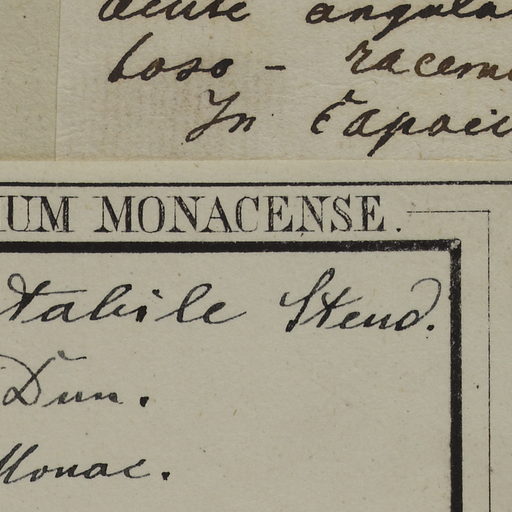 acute angula
boso - racem
In Capoei
IUM MONACENSE.
tabile Steud.
Dun.
Monac.